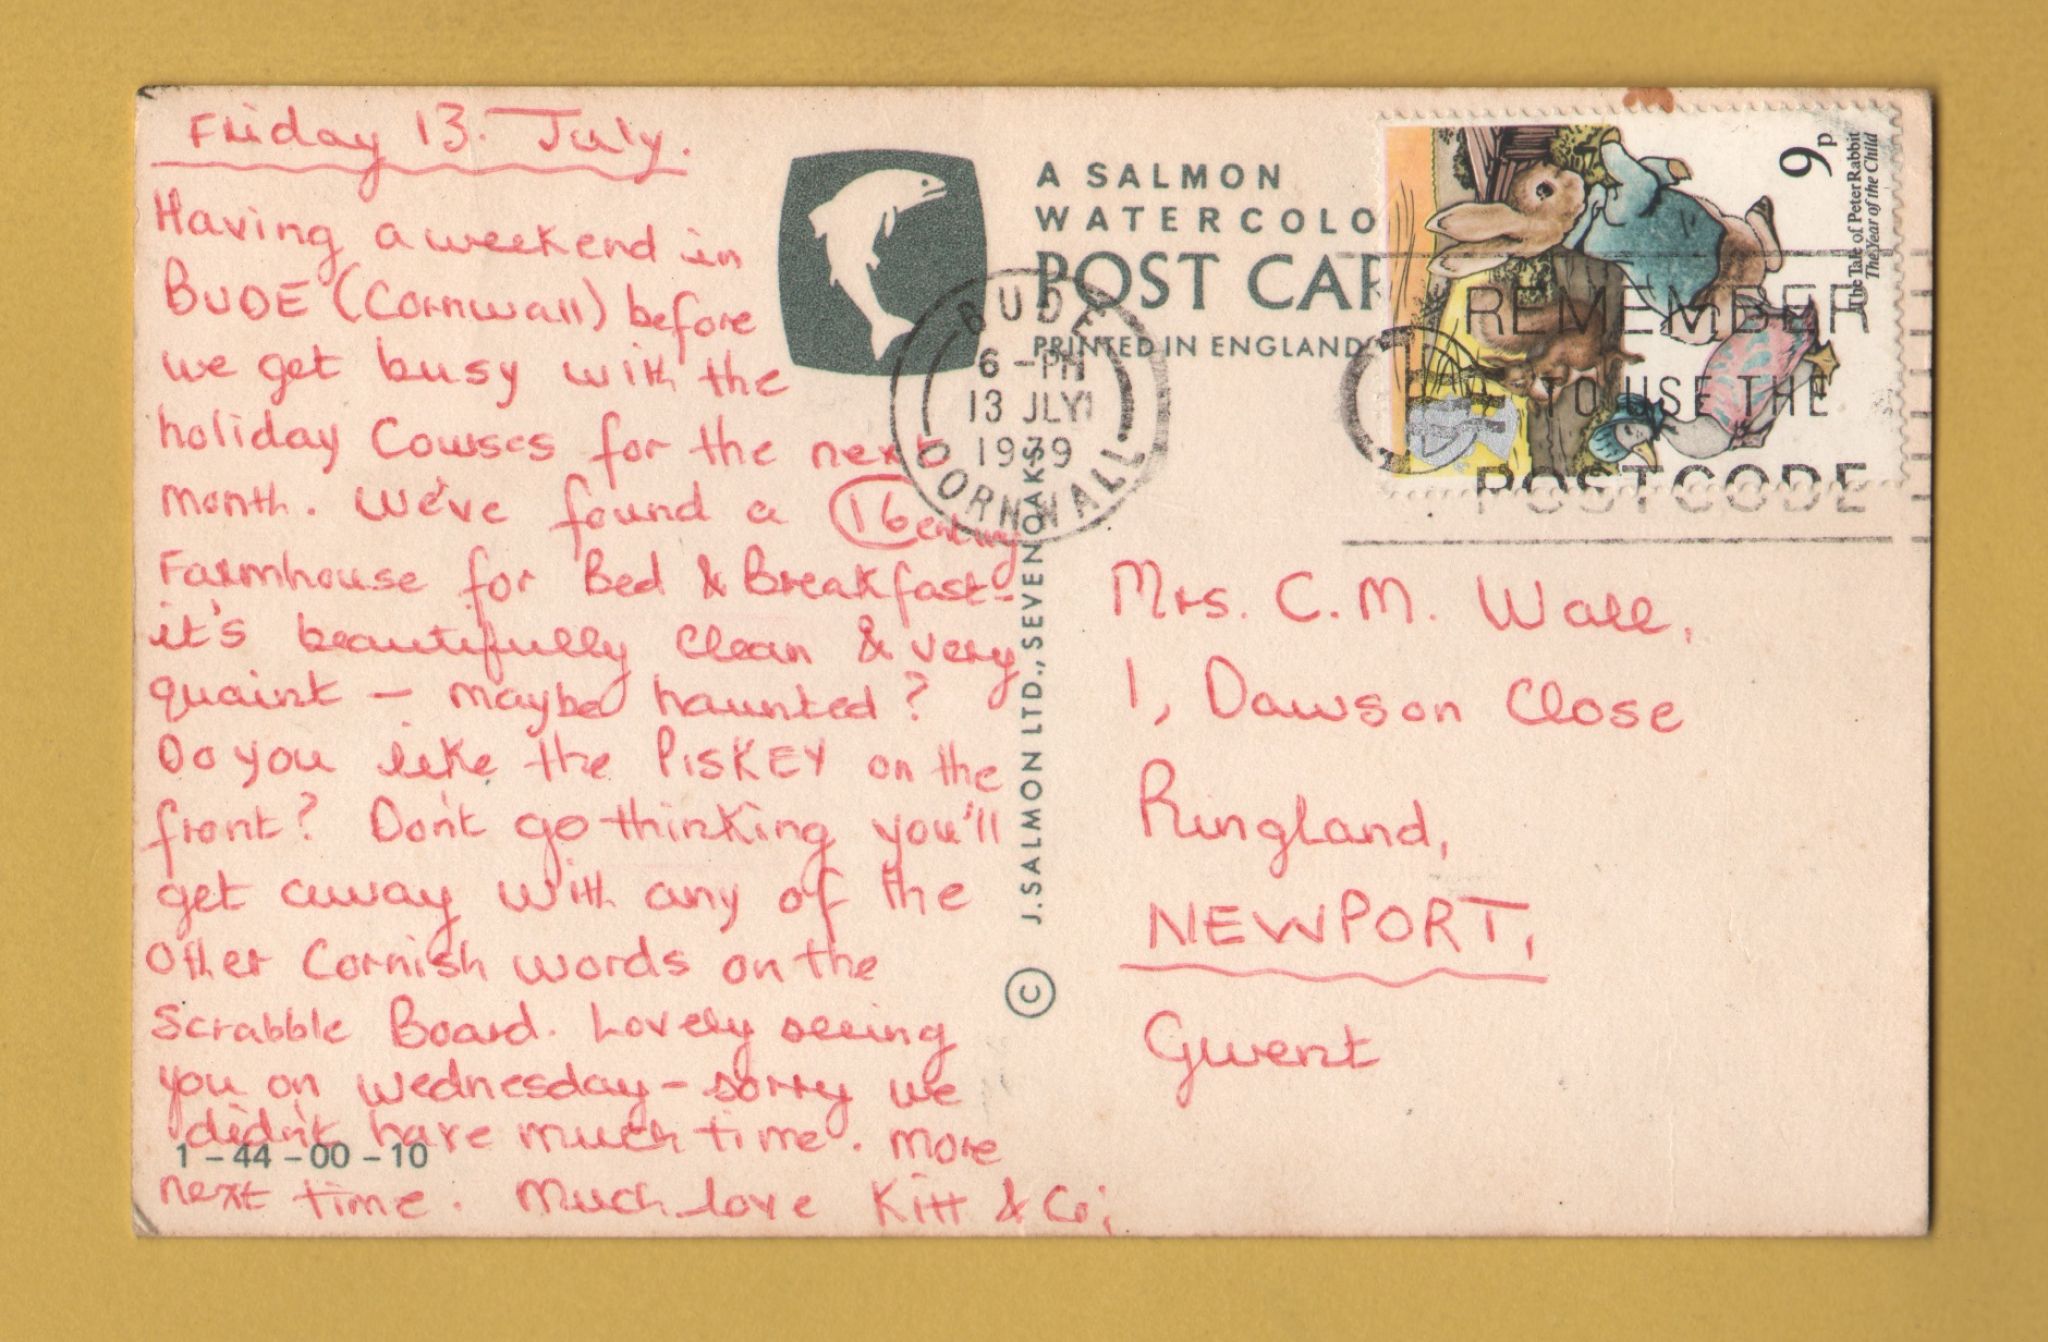 Friday 13. July.
Having a weekend in
BUDE (Cornwall) before
we get busy with the
holiday Courses for the next
month. We've found a 16 century
Farmhouse for Bed & Breakfast -
it's beautifully clean & very
quaint - maybe haunted?
Do you like the PISKEY on the
front? Don't go thinking you'll
get away with any of the
Other Cornish words on the
Scrabble Board. Lovely seeing
you on Wednesday - sorry we
didn't have much time. More
next time. Much love Kitt & Co;
1-44-00-10
A SALMON
WATERCOLO
POST CAR
PRINTED IN ENGLAND
© J. SALMON LTD., SEVENOAKS
BUDE
6 - PM
13 JLY
1979
CORNWALL
9p
The Tale of Peter Rabbit
The Year of the Child
REMEMBER
TO USE THE
POSTCODE
Mrs. C. M. Wall,
1, Dawson Close
Ringland,
NEWPORT,
Gwent